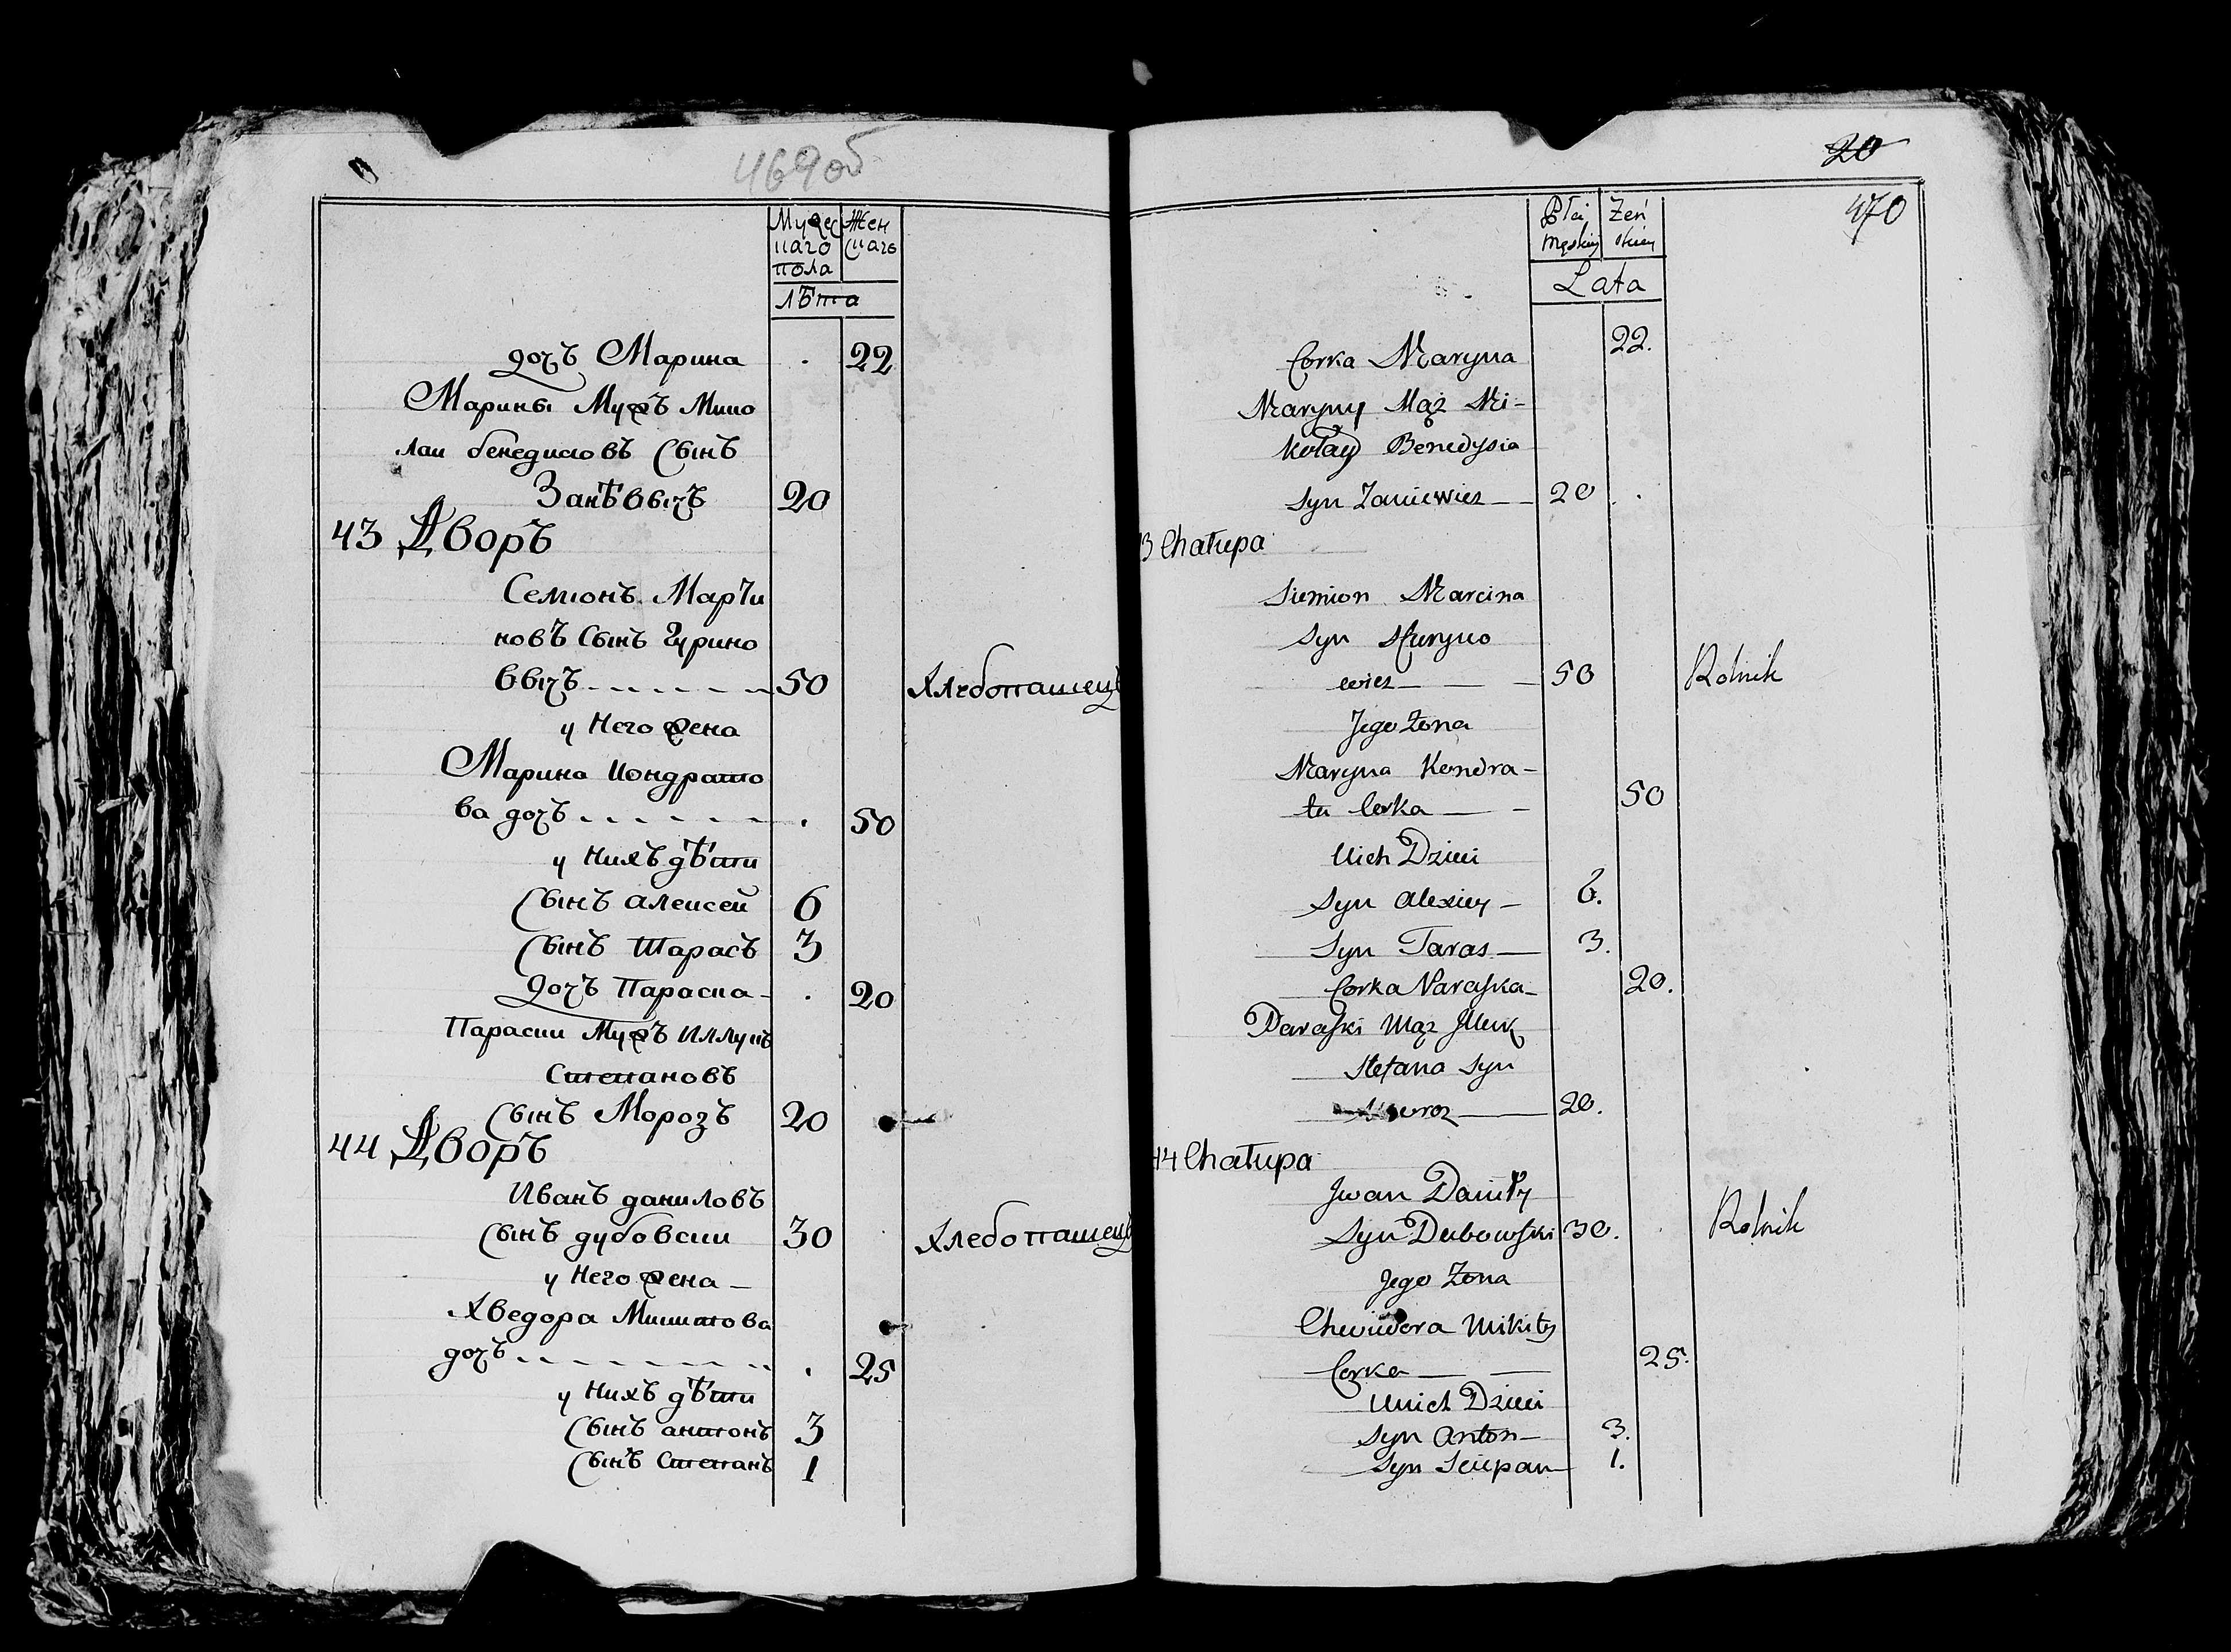 469об
Мужес Жен
каго скаго
пола
лѣта
дочъ Марина . 22
Марины Мужъ Мико
лаи бенедиковъ Сынъ
Занѣввичъ 20
43 Дворъ
Семионъ Марти
новъ Сынъ Гурино
ввичъ 50 Хлебопашецъ
у Него жена
Марина Кондрато
ва дочъ . 50
у Нихъ дѣти
Сынъ алексеи 6
Сынъ Тарасъ 3
Дочъ Параска - . 20
Параски Мужъ
Степановъ
Сынъ Морозъ 20
44 Дворъ
Иванъ даниловъ
Сынъ дубовски 30 Хлебопашецъ
у Него жена -
Хведора Микитова
дочъ . 25
у Нихъ дѣти
Сынъ антонъ 3
Сынъ Степанъ 1
20
470
Płci Żeń
męskiey skiey
Lata
Corka Maryna 22.
Maryny Mąż Mi-
kołay Benedysia
Syn Zaniewicz 20 .
3 Chałupa
Siemion Marcina
Syn Huryno
wicz 50 Rolnik
Jego Żona
Maryna Kondra-
ta Corka 50
Unich Dzieci
Syn Alexiey - 6.
Syn Taras 3.
Corka Paraska 20.
Paraski Mąż
Stefana Syn
Moroz 20.
44 Chałupa
Jwan Daniły
Syn Dubowski 30. Rolnik
Jego Żona
Chwiedora Mikity
Corka 25.
Unich Dzieci
Syn Anton 3.
Syn Sciepan 1.